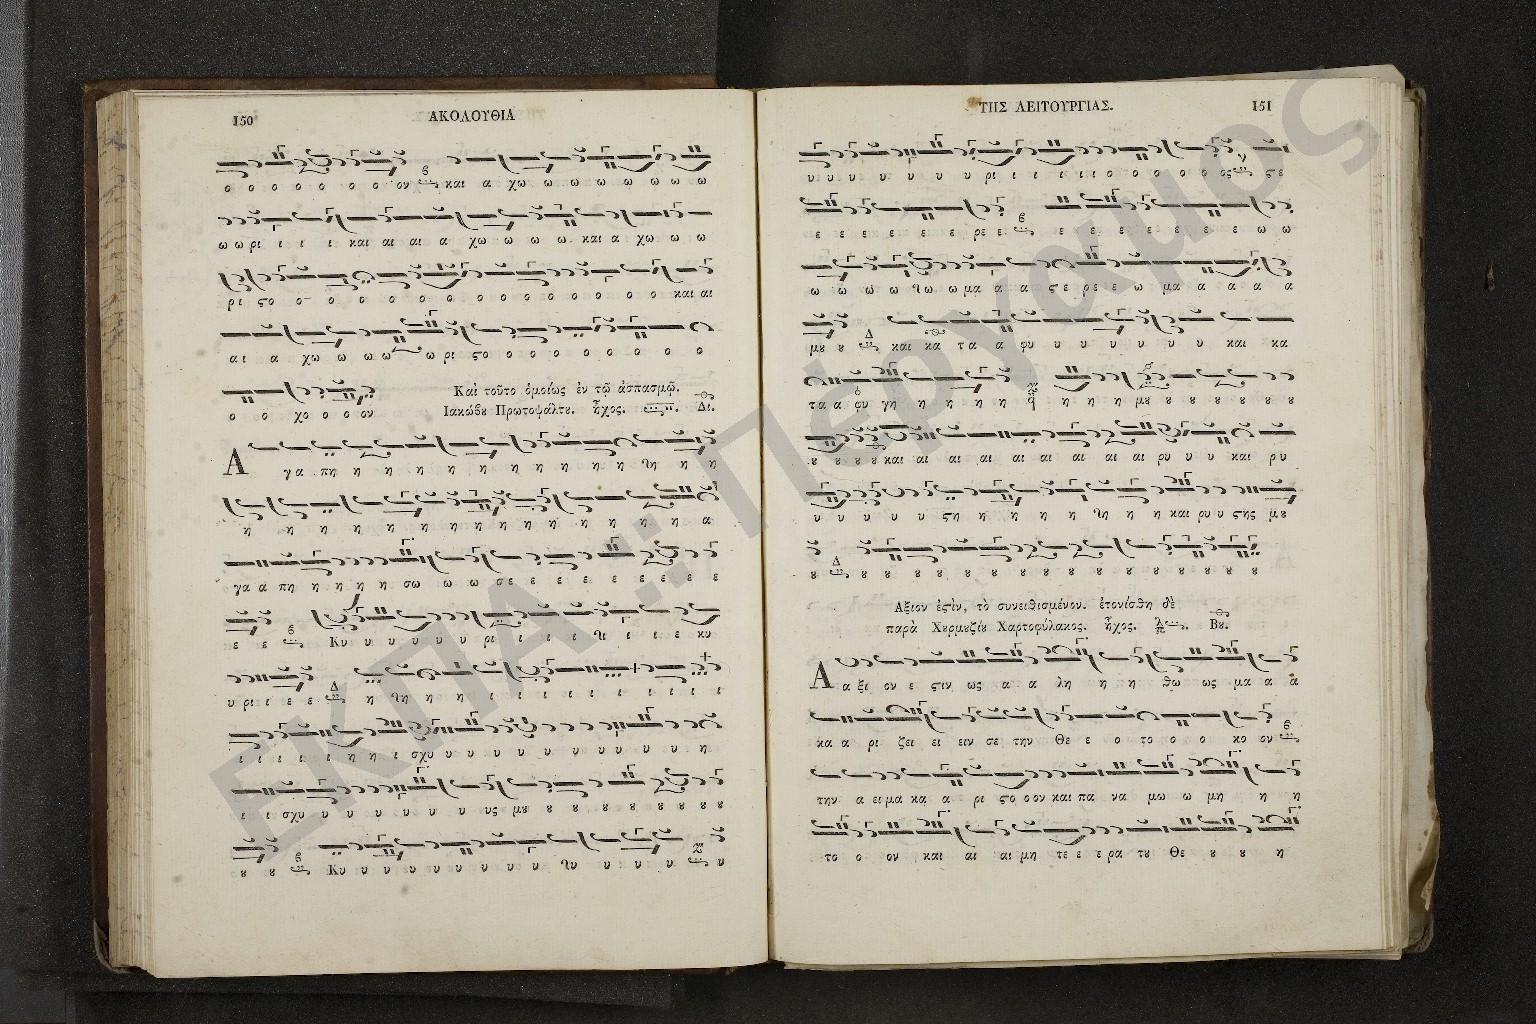 150
ΑΚΟΛΟΥΘΙΑ
ο ο ο ο ο ο ο ον και α χω ω ω ω ω ω ω ω
ω ω ρι ι ι ι και αι αι α χω ω ω ω και α χω ω ω
ρι ϛο ο ο ο ο ο ο ο ο ο ο ο ο ο και αι
αι α χω ω ω ω ω ρι ϛο ο ο ο ο ο ο ο ο
ο ο χο ο ο ον
Καὶ τοῦτο ὁμοίως ἐν τῷ ἀσπασμῷ.
Ιακώβȣ Πρωτοψάλτȣ. ἦχος. Δι.
Α γα πη η η η η η η η η η η η η
η η η η η η η η η η η η η α
γα α πη η η η η σω ω ω σε ε ε ε ε ε ε ε
ε ε Κυ υ υ υ υ υ ρι ι ι ι ι ι ε κυ
υ ρι ι ε ε η η η η ι ι ι ι ι ι ι ι
ι ι ι ι ι η η ι σχυ υ υ υ υ υ υ υ υ υ υ η
ι ι σχυ υ υ υ υ υ υ υς μȣ ȣ ȣ ȣ ȣ ȣ ȣ ȣ
ȣ ȣ Κυ υ υ υ υ υ υ υ υ υ υ υ υ υ
ΤΗΣ ΛΕΙΤΟΥΡΓΙΑΣ.
151
υ υ υ υ υ υ υ ρι ι ι ι ι ο ο ο ο ο ος ϛε
ε ε ε ε ε ε ρε ε ε ε ε ε ε ε ε ω ω
ω ω ω ω ω ω μα α α ϛε ρε ε ω μα α α α α
μȣ ȣ και κα τα α φυ υ υ υ υ υ υ και κα
τα α φυ γη η η η η η η η μȣ ȣ ȣ ȣ ȣ ȣ ȣ
ȣ ȣ ȣ και αι αι αι αι αι αι αι αι ρυ υ υ και ρυ
υ υ υ υ υ ϛη η η η η η η η και ρυ υ ϛης μȣ
ȣ ȣ ȣ ȣ ȣ ȣ ȣ ȣ ȣ ȣ ȣ ȣ ȣ ȣ ȣ
Αξιον ἐϛὶν, τὸ συνειθισμένον. ἐτονίσθη δὲ
παρὰ Χȣρμȣζίȣ Χαρτοφύλακος. ἦχος. Βȣ.
Α α ξι ον ε ϛιν ως α α λη η η θω ως μα α α
κα α ρι ζει ει ειν σε την Θε ε ο το ο ο κο ον
την α ει μα κα α ρι ϛο ο ον και πα να μω ω μη η η
το ο ον και αι αι μη τε ε ε ρα τȣ Θε ȣ ȣ η
ΕΚΠΑ :: Πέργαμος